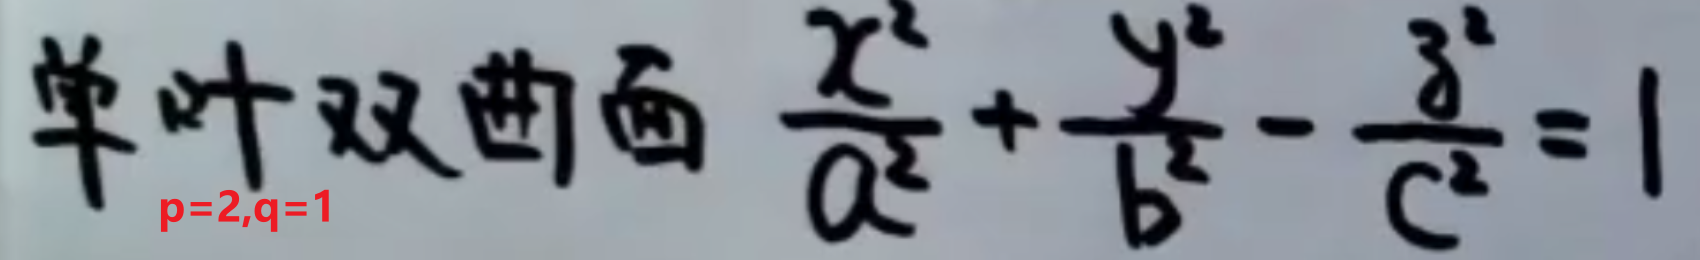 单叶双曲面 x²/a² + y²/b² - z²/c² = 1
p=2,q=1